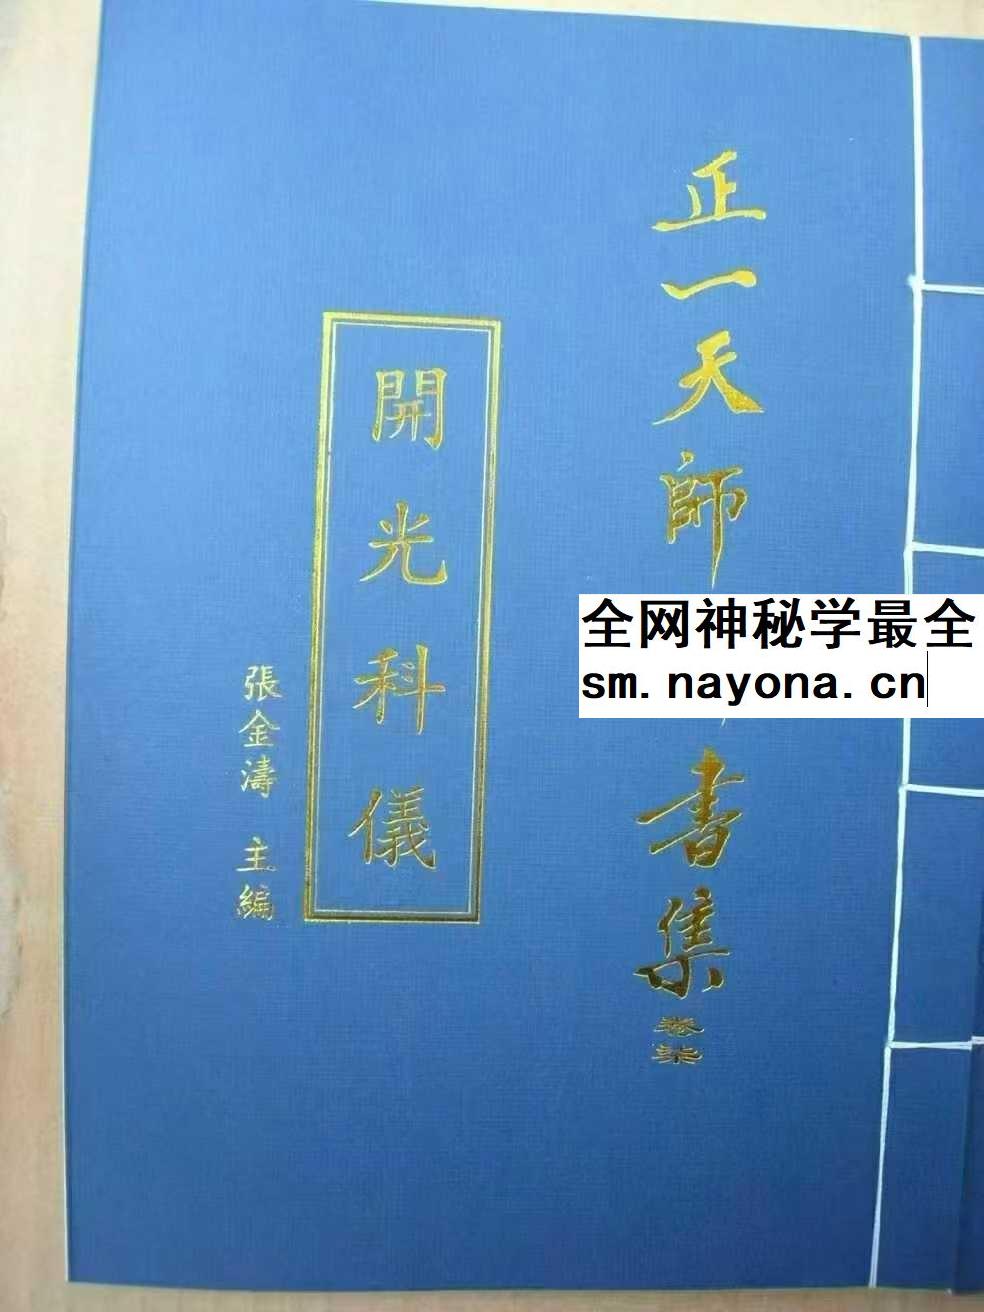 正一天師
書集
卷柒
開光科儀
張金濤 主編
全网神秘学最全
sm.nayona.cn